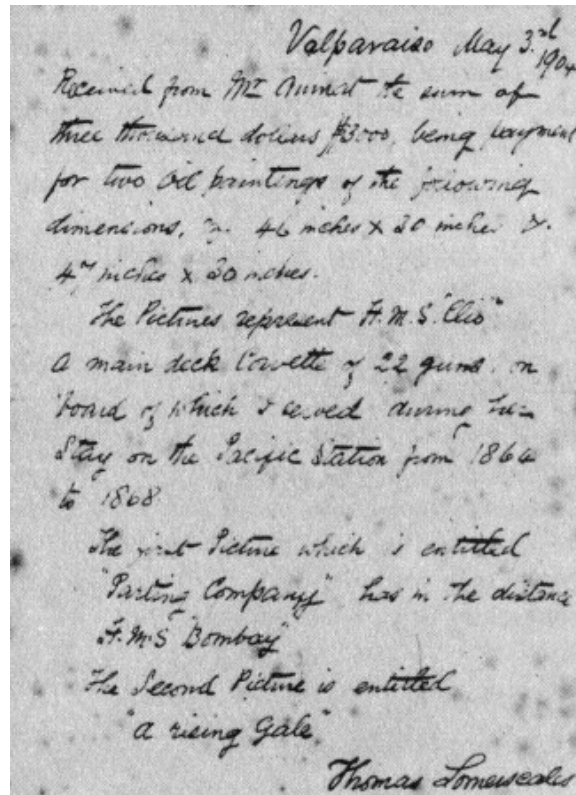 Valparaiso May 3.rd 1904
Received from Mr the sum of
three thousand dollars $3000, being payment
for two oil paintings of the following
dimensions, 46 inches x 20 inches &
47 inches x 20 inches.
The Pictures represent H.M.S. "Clio"
a main deck Corvette of 22 guns. on
board of which I served during her
Stay on the Pacific Station from 1864
to 1868
The first Picture which is entitled
"Parting Company" has in the distance
H.M.S "Bombay"
The Second Picture is entitled
"A rising Gale"
Thomas Somerscales